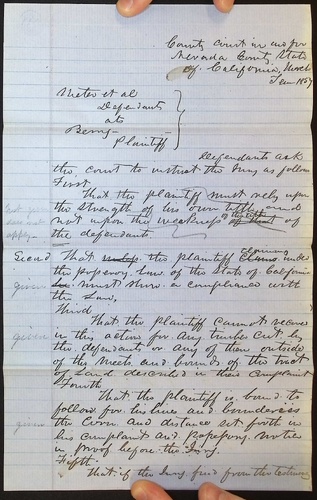 County Court in and for
Nevada County State
of California, March
Term 1857
Meter et al
Defendants
ats
Berry
Plaintiff
Defendants ask
the court to instruct the Jury as follows
First
That the plaintiff must rely upon
the strength of his own title and
not upon the weakness of that of
the defendants
Second That the plaintiff claiming under
the possessory Law of the State of California
given must show a compliance with
the Law,
Third
That the Plaintiff cannot recover
given in this action for any timber cut by
the defendants or any of them outside
of the meets and bounds of the tract
of Land described in their complaint
Fourth
That the Plaintiff is bound to
follow for his lines and boundaries
given the corn and distance set forth in
his complaint and possessory notice
in proof before the Jury.
Fifth
That if the Jury find from the testimony